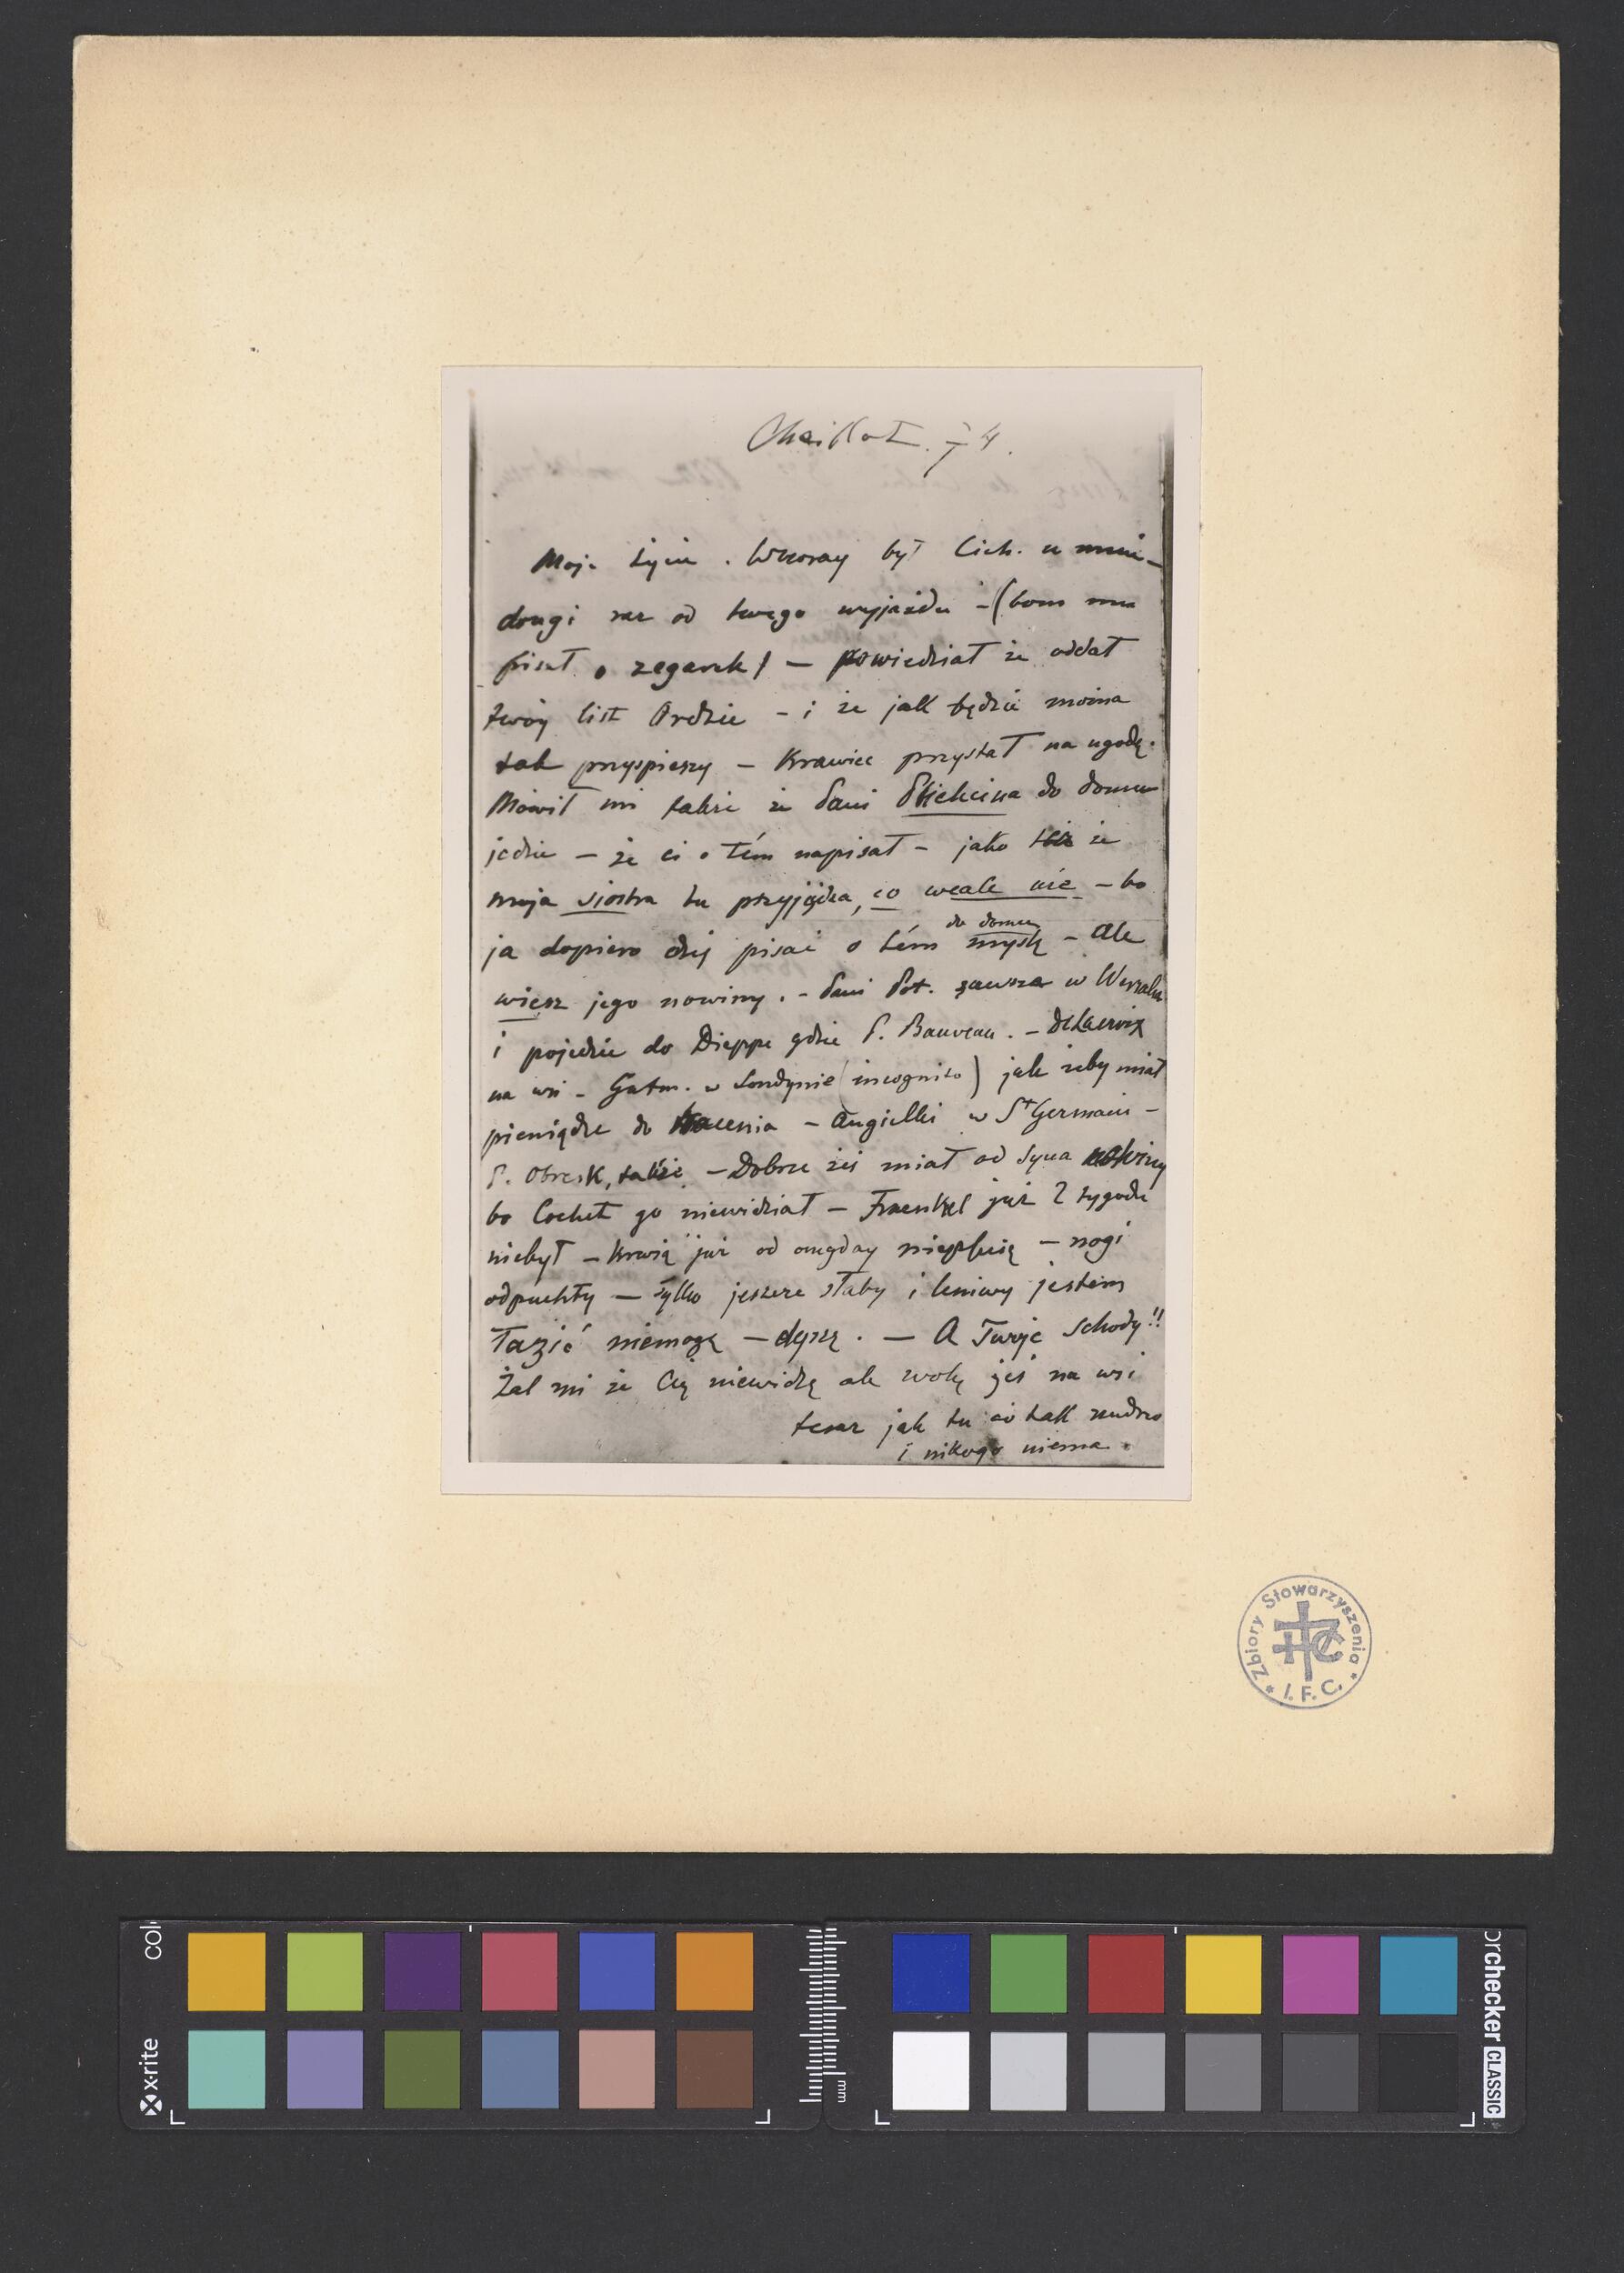 Chaillot.
Moje życie. Wczoray był Cich. u mnie –
drugi raz od twego wyjazdu – (bom mu
pisał o zegarek) – powiedział że oddał
twóy list Ordzie – i że jak będzie można
tak przyspieszy – Krawiec przystał na ugodę.
Mówił mi także że Pani Plichcina do domu
jedzie – że ci o tém napisał – jako też że
moja siostra tu przyjeżdża, co wcale nie – bo
ja dopiero dziś pisać o tém do domu myślę – Ale
wiesz jego nowiny. – Pani Pot. zawsze w Wersalu
i pojedzie do Dieppe gdzie P. Bauveau. – DeLacroix
na wsi – Gutm. w Londynie (incognito) jak żeby miał
pieniądze do tracenia – Angielki w St Germain –
P. Obresk, także. – Dobrze żeś miał od Syna nowiny
bo Cochet go niewidział – Fraenkel już 2 tygodn
niebył – Krwią już od onegday niepluię – nogi
odpuchły – tylko jeszcze słaby i leniwy jestem
łazić niemogę – dyszę. – A Twoje Schody!!
Żal mi że Cię niewidzę ale wolę żeś na wsi
teraz jak tu co tak nudno
i nikogo niema.
Zbiory Stowarzyszenia * I. F. C. *
x-rite
colorchecker CLASSIC
mm